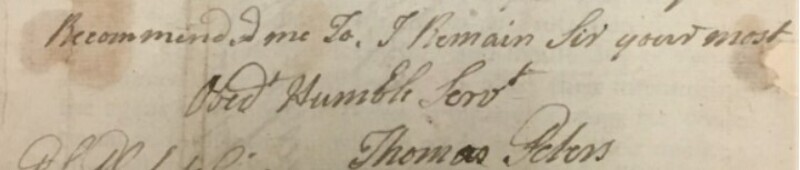 Recommend.d me To. I Remain Sir your most
Obed.t Humble Serv.t
Thomas Peters